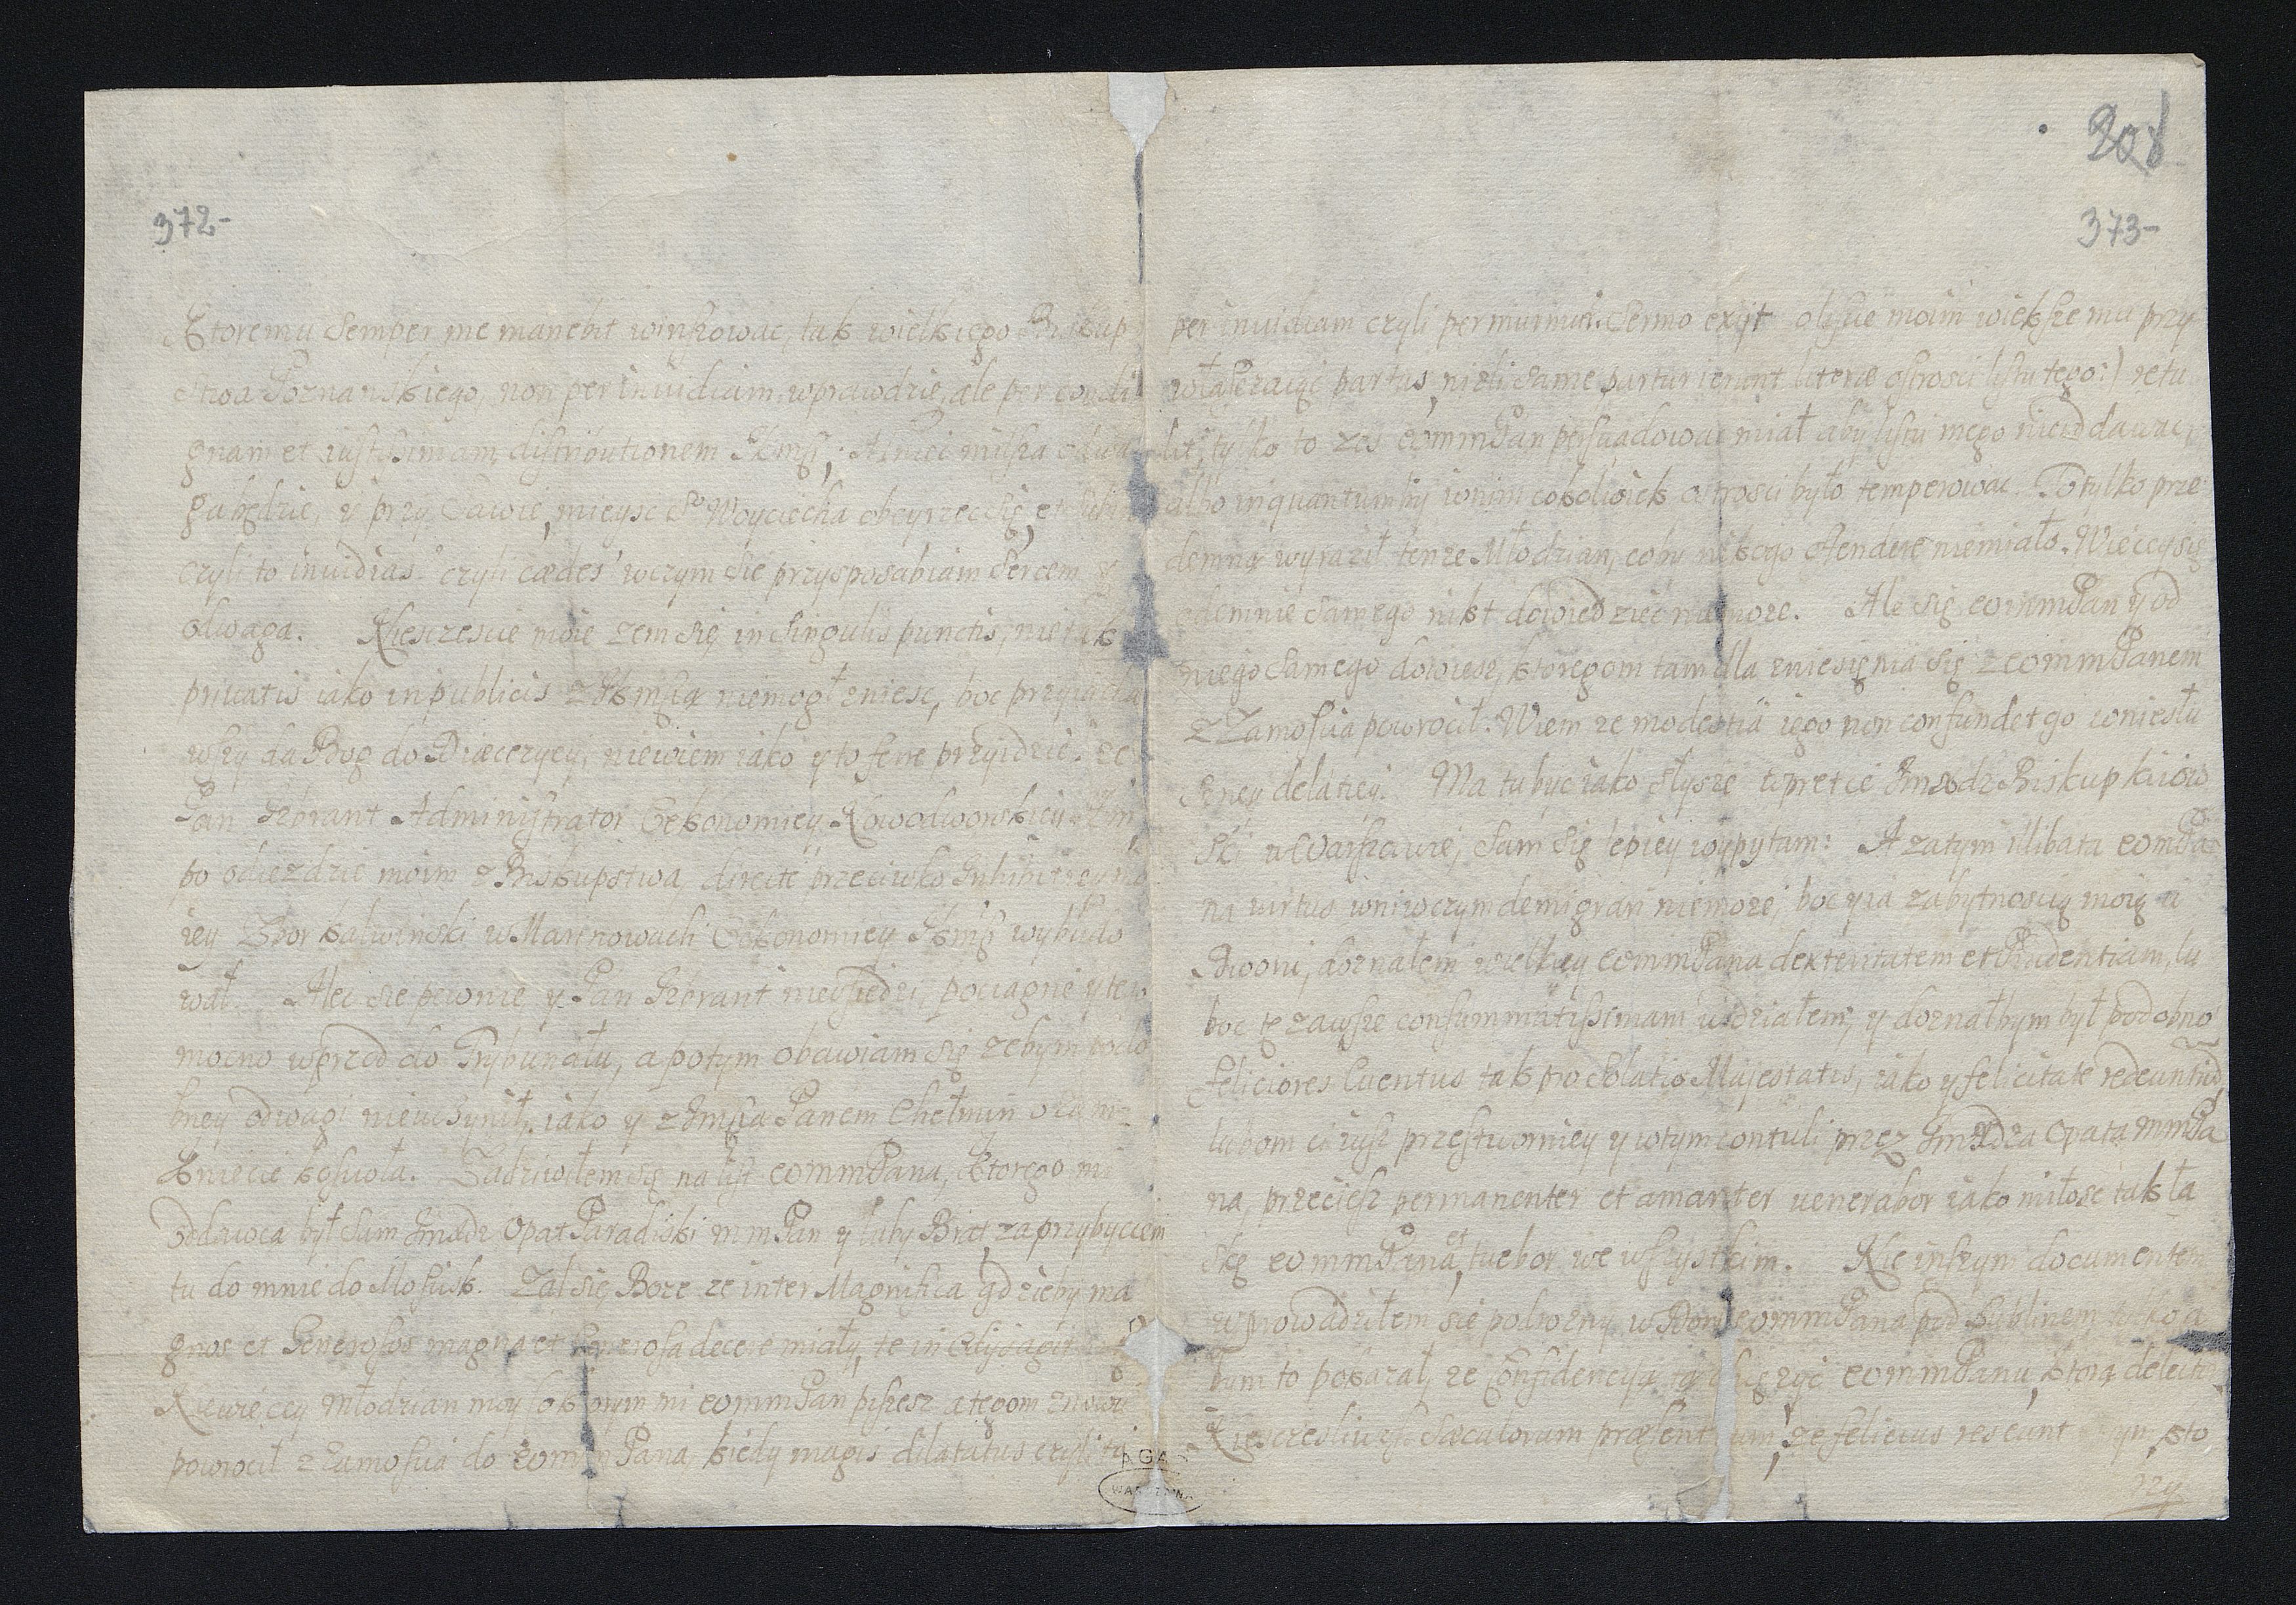 372-
Ktoremu semper me manebit winszowac, tak wielkiego Biskup
stwa Poznanskiego, non per inuidiam wprawdzie, ale per condi
gnam et iustissimam distributionem Ikmsi; Alnici milsza
gu będzie, y przy Sawie, mieysc So Woyciecha obeyrzec się, et
czyli to inuidias czyli cædes wczym sie przysposabiam sercem y
odwaga. Niesczescie moie zem się in singulis punctis, nie tak
priuatis iako in publicis z Ikmscią niemogł zniesc, boc przyiacha
wszy da Bog do Diæcezyey, niewiem iako y to ferre przyidzie. ze
Pan Gebrant Administrator Oekonomiey Nowodworskiey
po odiezdzie moim z Biskupstwa directe przeciwko Inhibitiey mo
iey Zbor kalwinski w Marenowach Oekonomiey Ikmsi wybudo
wał. Alec sie pewnie y Pan Gebrant nieosiedzi, pociagne y tego
mocno wprzod do Trybunału, a potym obawiam się zebym podo
bney odwagi nieuczynił, iako y z Imscią Panem Chełmin
kniecie koscioła. Zadziwiłem się na list eommPana, ktorego mi
oddawca był sam Imsdz Opat Paradiski mmPan y luby Brat, za przybyciem
tu do mnie do Moscisk. Zal się Boze ze inter Magnifica gdzieby ma
gnos et Generosos magna et generosa decere miały, te in
Niewięcey Młodzian moy o ktorym mi eommPan piszesz a tegom znowu
powrocił z Zamoscia do eommPana, kiedy magis dilatatus czyli to
208
373-
per inuidiam czyli per murmur sermo exijt o liscie moim wieksze mu przy
właszczaiąc partus, nizli same parturierunt literæ ostrosci listu tego:) retu
lit, tylko to zes eommPan persuadowac miał aby listu mego nieoddawac,
albo inquantumby wnim cokolwiek ostrosci było temperowac. To tylko prze
demną wyraził tenze Młodzian, coby nikogo offendere niemiało. Wiecey się
odemnie samego nikt dowiedziec niemoze. Ale się eommPan y od
niego samego dowiesz, ktoregom tam dla zniesienia się z eommPanem
z Zamoscia powrocił. Wiem ze modestia iego non confundet go wniesłu
szney delatiey. Ma tu byc iako słysze wpretce Imsdz Biskup kiiow
ski w Warszawie, sam się lepiey wypytam: A zatym illibata eommPa
na virtus wniwczym demigrari niemoze, boc y ia zabytnoscią moią u
Dworu, doznałem wielkiey eommPana dexteritatem et Prudentiam, lu
boc tę zawsze consummatissimam widziałem, y doznałbym był podobno
feliciores Euentus tak pro Solatio Majestatis, iako y felicitate redeuntiũ,
lubom ci iusz przestworniey y wtym contuli przez Imsdza Opata mmPa
na, przeciesz permanenter et amanter uenerabor iako miłosc tak ła
skę eommPana, et tuebor we wszystkim. Nie inszym documentem
wprowadziłem sie pobozny w Dom eommPana pod Lublinem tylko a
bym to pokazał, ze confidencyą zyię eommPanu, ktorą delector
Niesczesliwosc sæculorum præsentium, ze felicius rescunt
rzy
AGAD
WARSZAWA